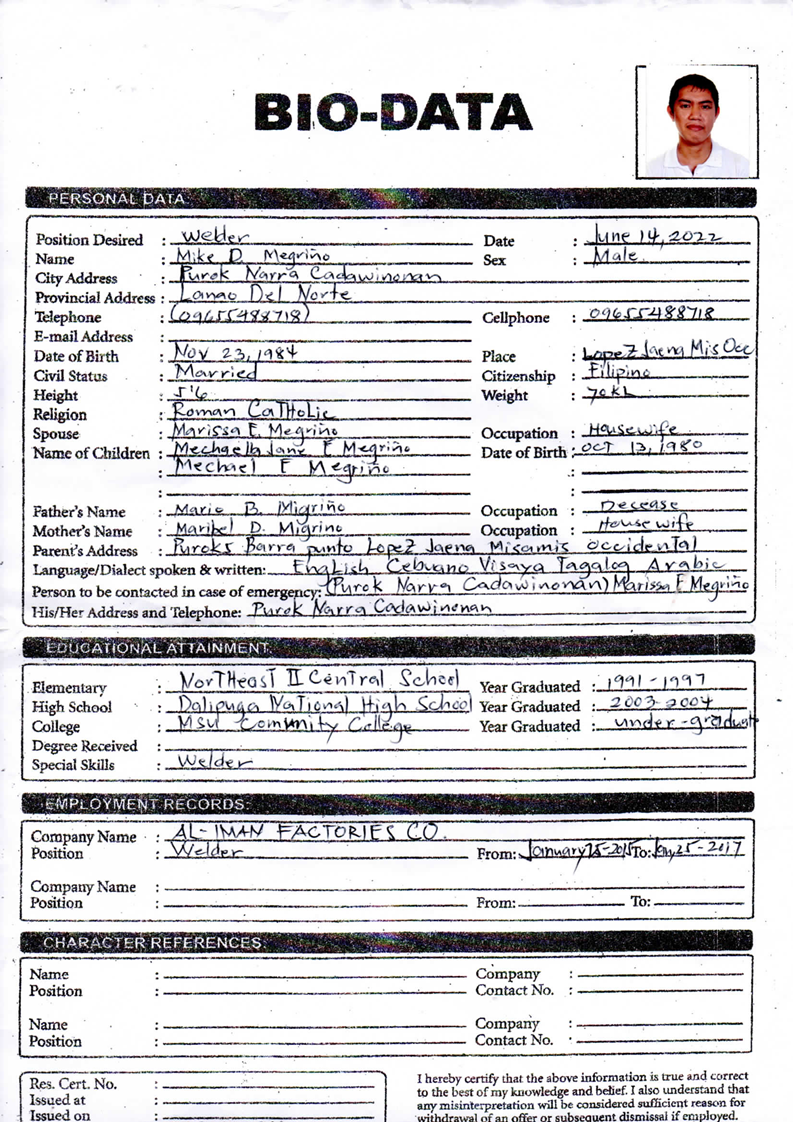 BIO-DATA
PERSONAL DATA
Position Desired : Welder Date : June 14, 2022
Name : Mike D. Megriño Sex : Male
City Address : Purok Narra Cadawinonan
Provincial Address : Lanao Del Norte
Telephone : (09655488718) Cellphone : 09655488718
E-mail Address :
Date of Birth : Nov 23, 1984 Place : Lopez Jaena Mis Occ
Civil Status : Married Citizenship : Filipino
Height : 5'6 Weight : 70
Religion : Roman CaTHolic
Spouse : Marissa F. Megriño Occupation : Housewife
Name of Children : Jane F Megriño Date of Birth : OCT 13, 1980
: Mechael F Megriño :
: :
Father's Name : Mario B. Migriño Occupation : Decease
Mother's Name : Maribel D. Migrino Occupation : House wife
Parent's Address : Purok5 Barra punto Lopez Jaena Misamis occidenTal
Language/Dialect spoken & written: English Cebuano Visaya Tagalog Arabic
Person to be contacted in case of emergency: (Purok Narra Cadawinonan) Marissa F Megriño
His/Her Address and Telephone: Purok Narra Cadawinonan
EDUCATIONAL ATTAINMENT
Elementary : NorTHeast II Central School Year Graduated : 1991-1997
High School : Dalipuga NaTional High School Year Graduated : 2003-2004
College : MSU Comunity College Year Graduated : under-graduate
Degree Received :
Special Skills : Welder
EMPLOYMENT RECORDS
Company Name : AL-IMAN FACTORIES CO.
Position : Welder From: January 15-2015 To: Jan, 25-2017
Company Name :
Position : From: To:
CHARACTER REFERENCES
Name : Company :
Position : Contact No. :
Name : Company :
Position : Contact No. :
Res. Cert. No. :
Issued at :
Issued on :
I hereby certify that the above information is true and correct
to the best of my knowledge and belief. I also understand that
any misinterpretation will be considered sufficient reason for
withdrawal of an offer or subsequent dismissal if employed.